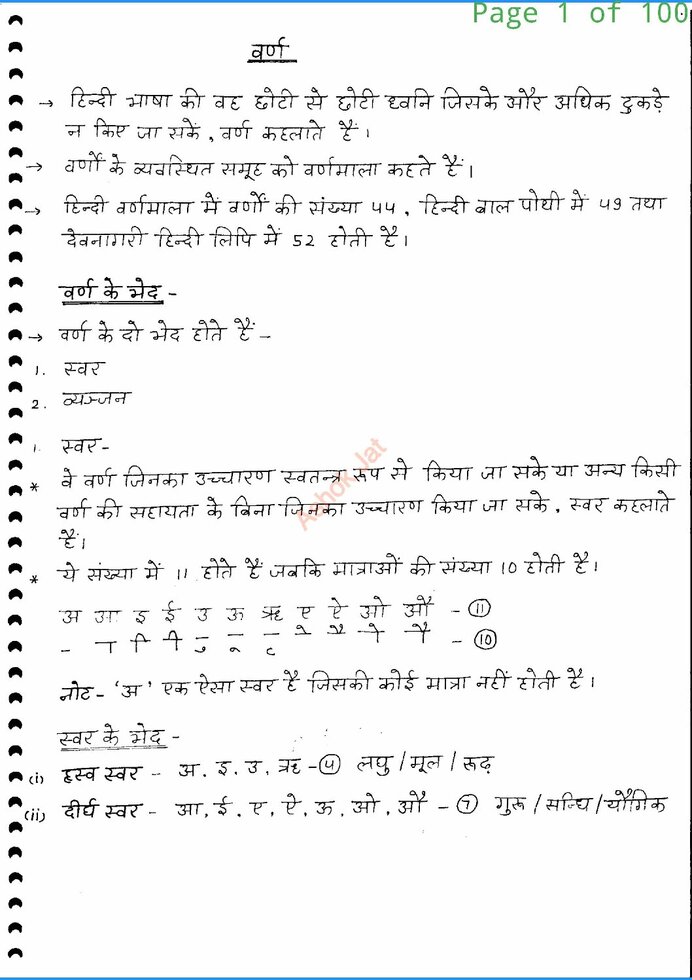 Page 1 of 100
वर्ण
→ हिन्दी भाषा की वह छोटी से छोटी ध्वनि जिसके और अधिक टुकड़े
न किए जा सकें, वर्ण कहलाते हैं।
→ वर्णों के व्यवस्थित समूह को वर्णमाला कहते हैं।
→ हिन्दी वर्णमाला में वर्णों की संख्या 44, हिन्दी बाल पोथी में 49 तथा
देवनागरी हिन्दी लिपि में 52 होती है।
वर्ण के भेद -
→ वर्ण के दो भेद होते हैं -
1. स्वर
2. व्यञ्जन
1. स्वर-
* वे वर्ण जिनका उच्चारण स्वतन्त्र रूप से किया जा सके या अन्य किसी
वर्ण की सहायता के बिना जिनका उच्चारण किया जा सके, स्वर कहलाते
हैं।
* ये संख्या में 11 होते हैं जबकि मात्राओं की संख्या 10 होती है।
अ आ इ ई उ ऊ ऋ ए ऐ ओ औ - 11
- ा ि ी ु ू ृ े ै ो ौ - 10
नोट - 'अ' एक ऐसा स्वर है जिसकी कोई मात्रा नहीं होती है।
स्वर के भेद -
(i) ह्रस्व स्वर - अ, इ, उ, ऋ - 4 लघु / मूल / रूढ़
(ii) दीर्घ स्वर - आ, ई, ए, ऐ, ऊ, ओ, औ - 7 गुरू / सन्धि / यौगिक
Ashok Jat